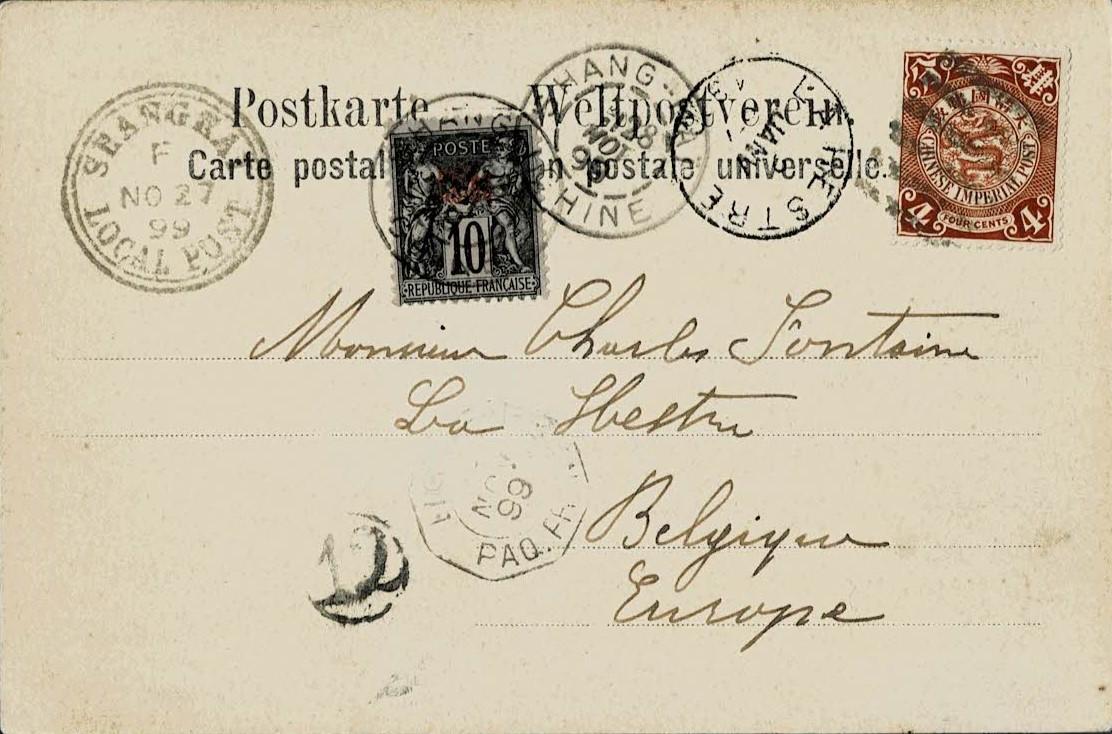 Postkarte Weltpostverein
Carte postale universelle.
SHANGHAI
F
NO 27
99
LOCAL POST
SHANG-HAI
28
NOV
99
CHINE
LA HESTRE
JANV
POSTE
10
REPUBLIQUE FRANÇAISE
CHINESE IMPERIAL POST
4 FOUR CENTS 4
Monsieur Charles Fontaine
La Hestre
Belgique
Europe
NOV
99
PAQ. FR.